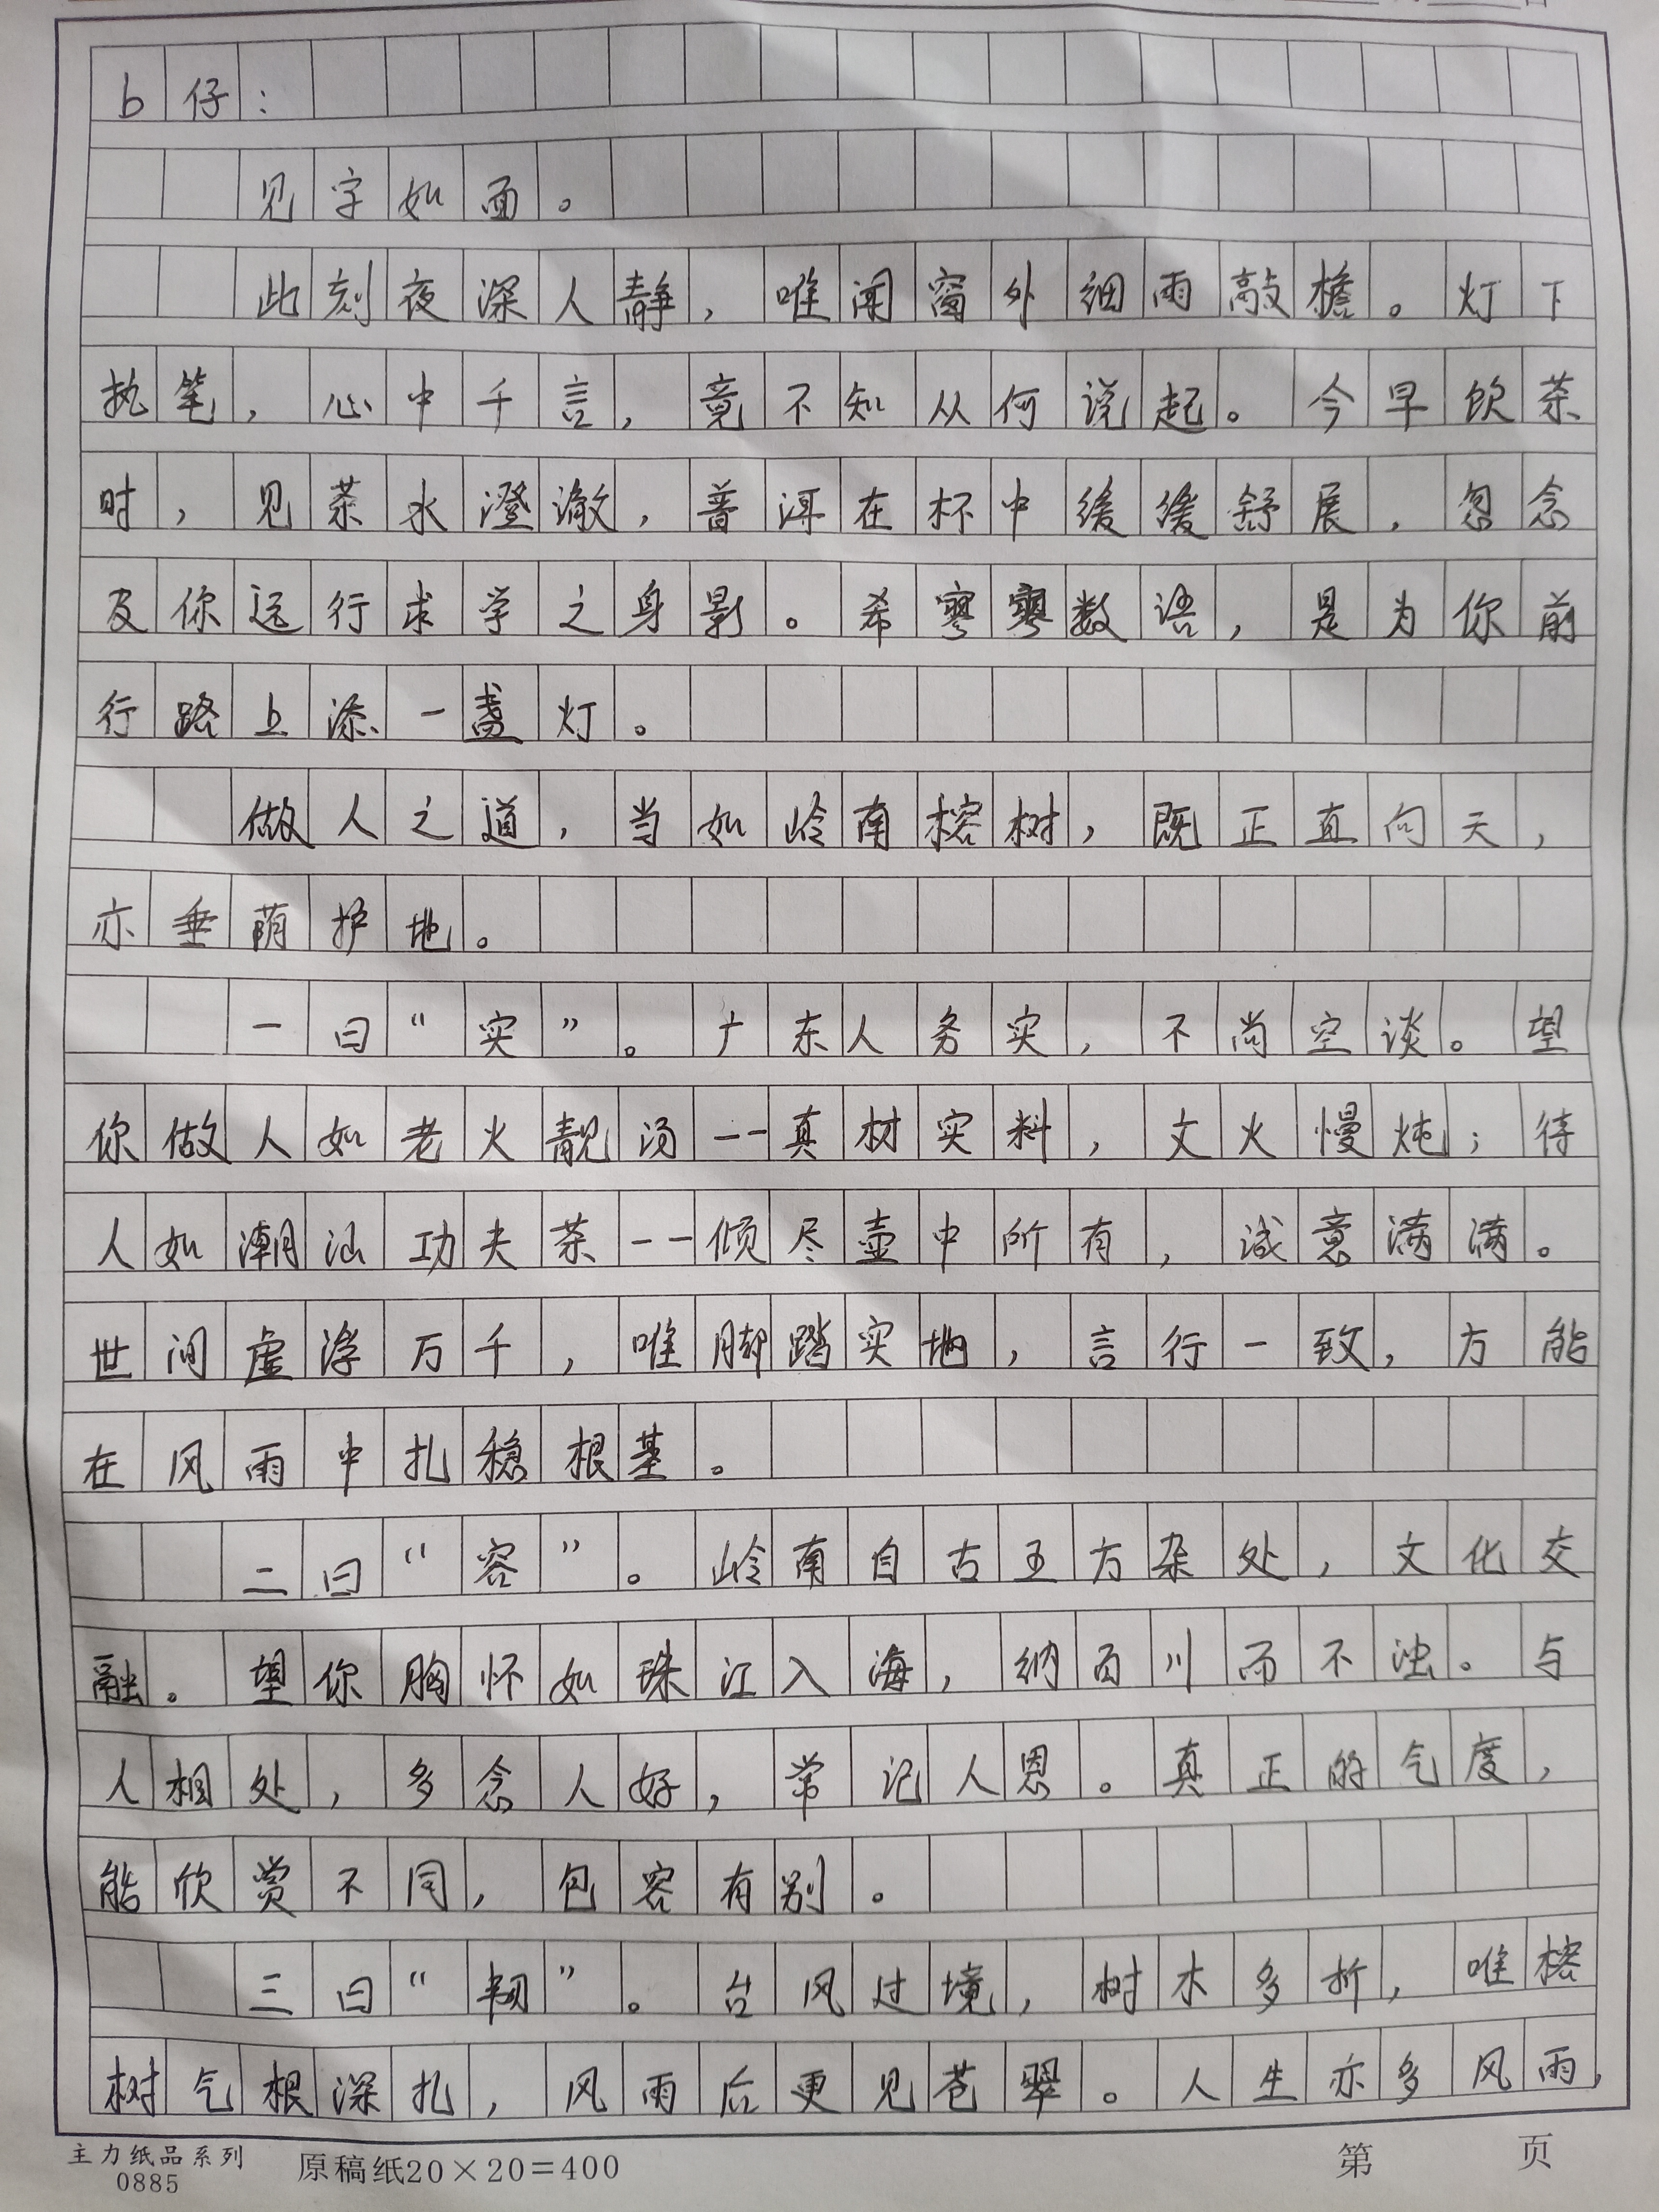 b仔：
见字如面。
此刻夜深人静，唯闻窗外细雨敲檐。灯下
执笔，心中千言，竟不知从何说起。今早饮茶
时，见茶水澄澈，普洱在杯中缓缓舒展，忽念
及你远行求学之身影。希寥寥数语，是为你前
行路上添一盏灯。
做人之道，当如岭南榕树，既正直向天，
亦垂荫护地。
一曰“实”。广东人务实，不尚空谈。望
你做人如老火靓汤——真材实料，文火慢炖；待
人如潮汕功夫茶——倾尽壶中所有，诚意满满。
世间虚浮万千，唯脚踏实地，言行一致，方能
在风雨中扎稳根基。
二曰“容”。岭南自古五方杂处，文化交
融。望你胸怀如珠江入海，纳百川而不浊。与
人相处，多念人好，常记人恩。真正的气度，
能欣赏不同，包容有别。
三曰“韧”。台风过境，树木多折，唯榕
树气根深扎，风雨后更见苍翠。人生亦多风雨，
主力纸品系列
0885
原稿纸20×20=400
第 页